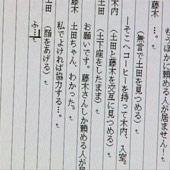 もうほかに頼める人が居ません…
(無言で土田を見つめる)
そこへコーヒーを持って木内、入室。
木内 (土田と藤木を交互に見つめる)
土田 (土下座をしたまま)
お願いです。藤木さんしか頼める人が
藤木 土田ちゃん、わかった。
私でよければ協力する…。
土田 (顔をあげる)
ふ